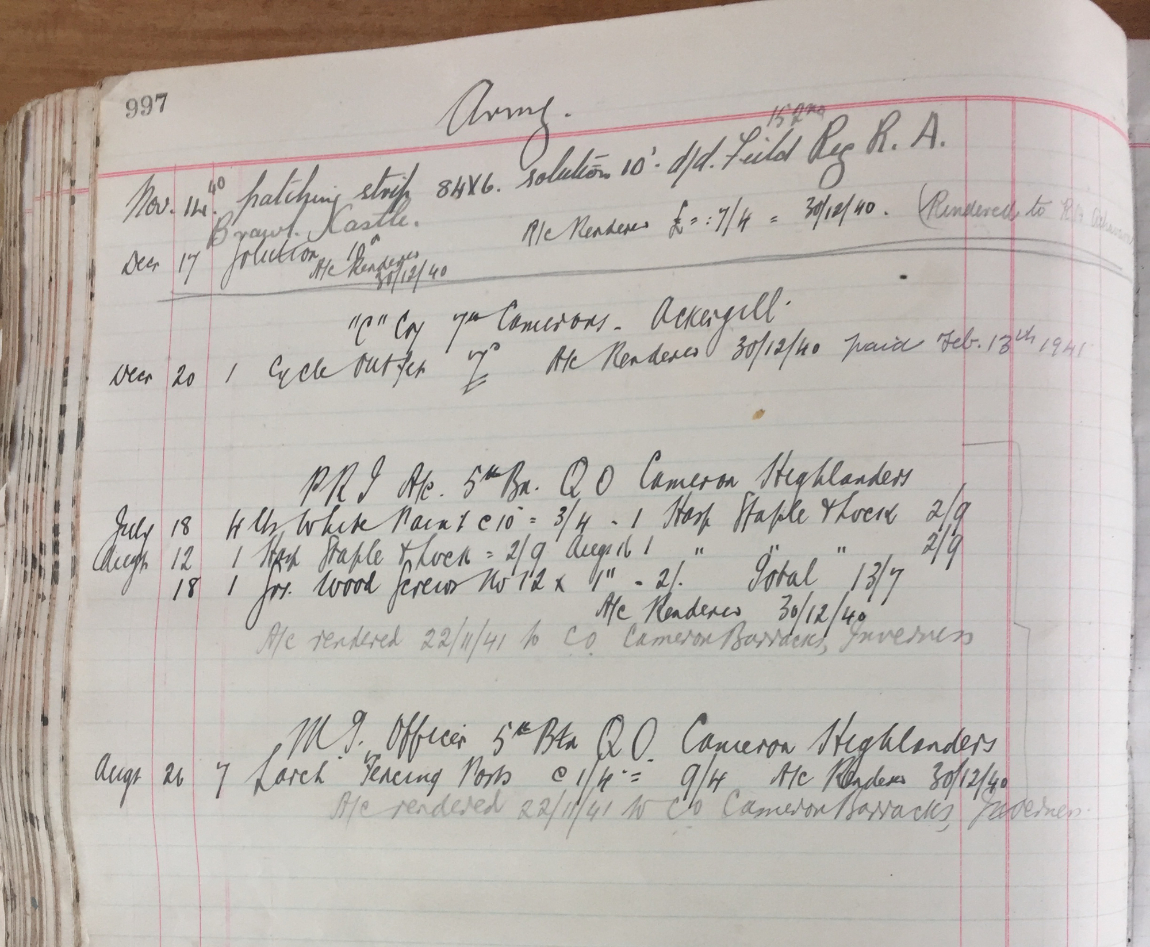 997
Army.
152nd
Nov. 14. 40 patching strip 84X6. solution 10d. d/d. Field Reg R. A.
Brawl Castle. A/c Rendered £=:7/4 = 30/12/40. (Rendered to R.A.
Decr 17 Solution 10d A/c Rendered
30/12/40
"C" Coy 7th Camerons - Ackergill.
Decr 20 1 Cycle Outfit A/c Rendered 30/12/40 paid Feb. 13th 1941
P R I A/c. 5th Bn. Q O Cameron Highlanders
July 18 4 lbs White Paint @ 10d = 3/4 - 1 Hasp Staple & Lock 2/9
Augt 12 1 Hasp Staple & Lock = 2/9 Aug 16 1 " " " 2/9
18 1 grs. Wood Screws No 12 x 1" - 2/. Total 13/7
A/c Rendered 30/12/40
A/c rendered 22/11/41 to C.O. Cameron Barracks, Inverness
M.T. Officer 5th Btn Q O. Cameron Highlanders
Augt 26 7 Larch Fencing Posts @ 1/4 = 9/4 A/c Rendered 30/12/40
A/c rendered 22/11/41 to C O Cameron Barracks, Inverness.